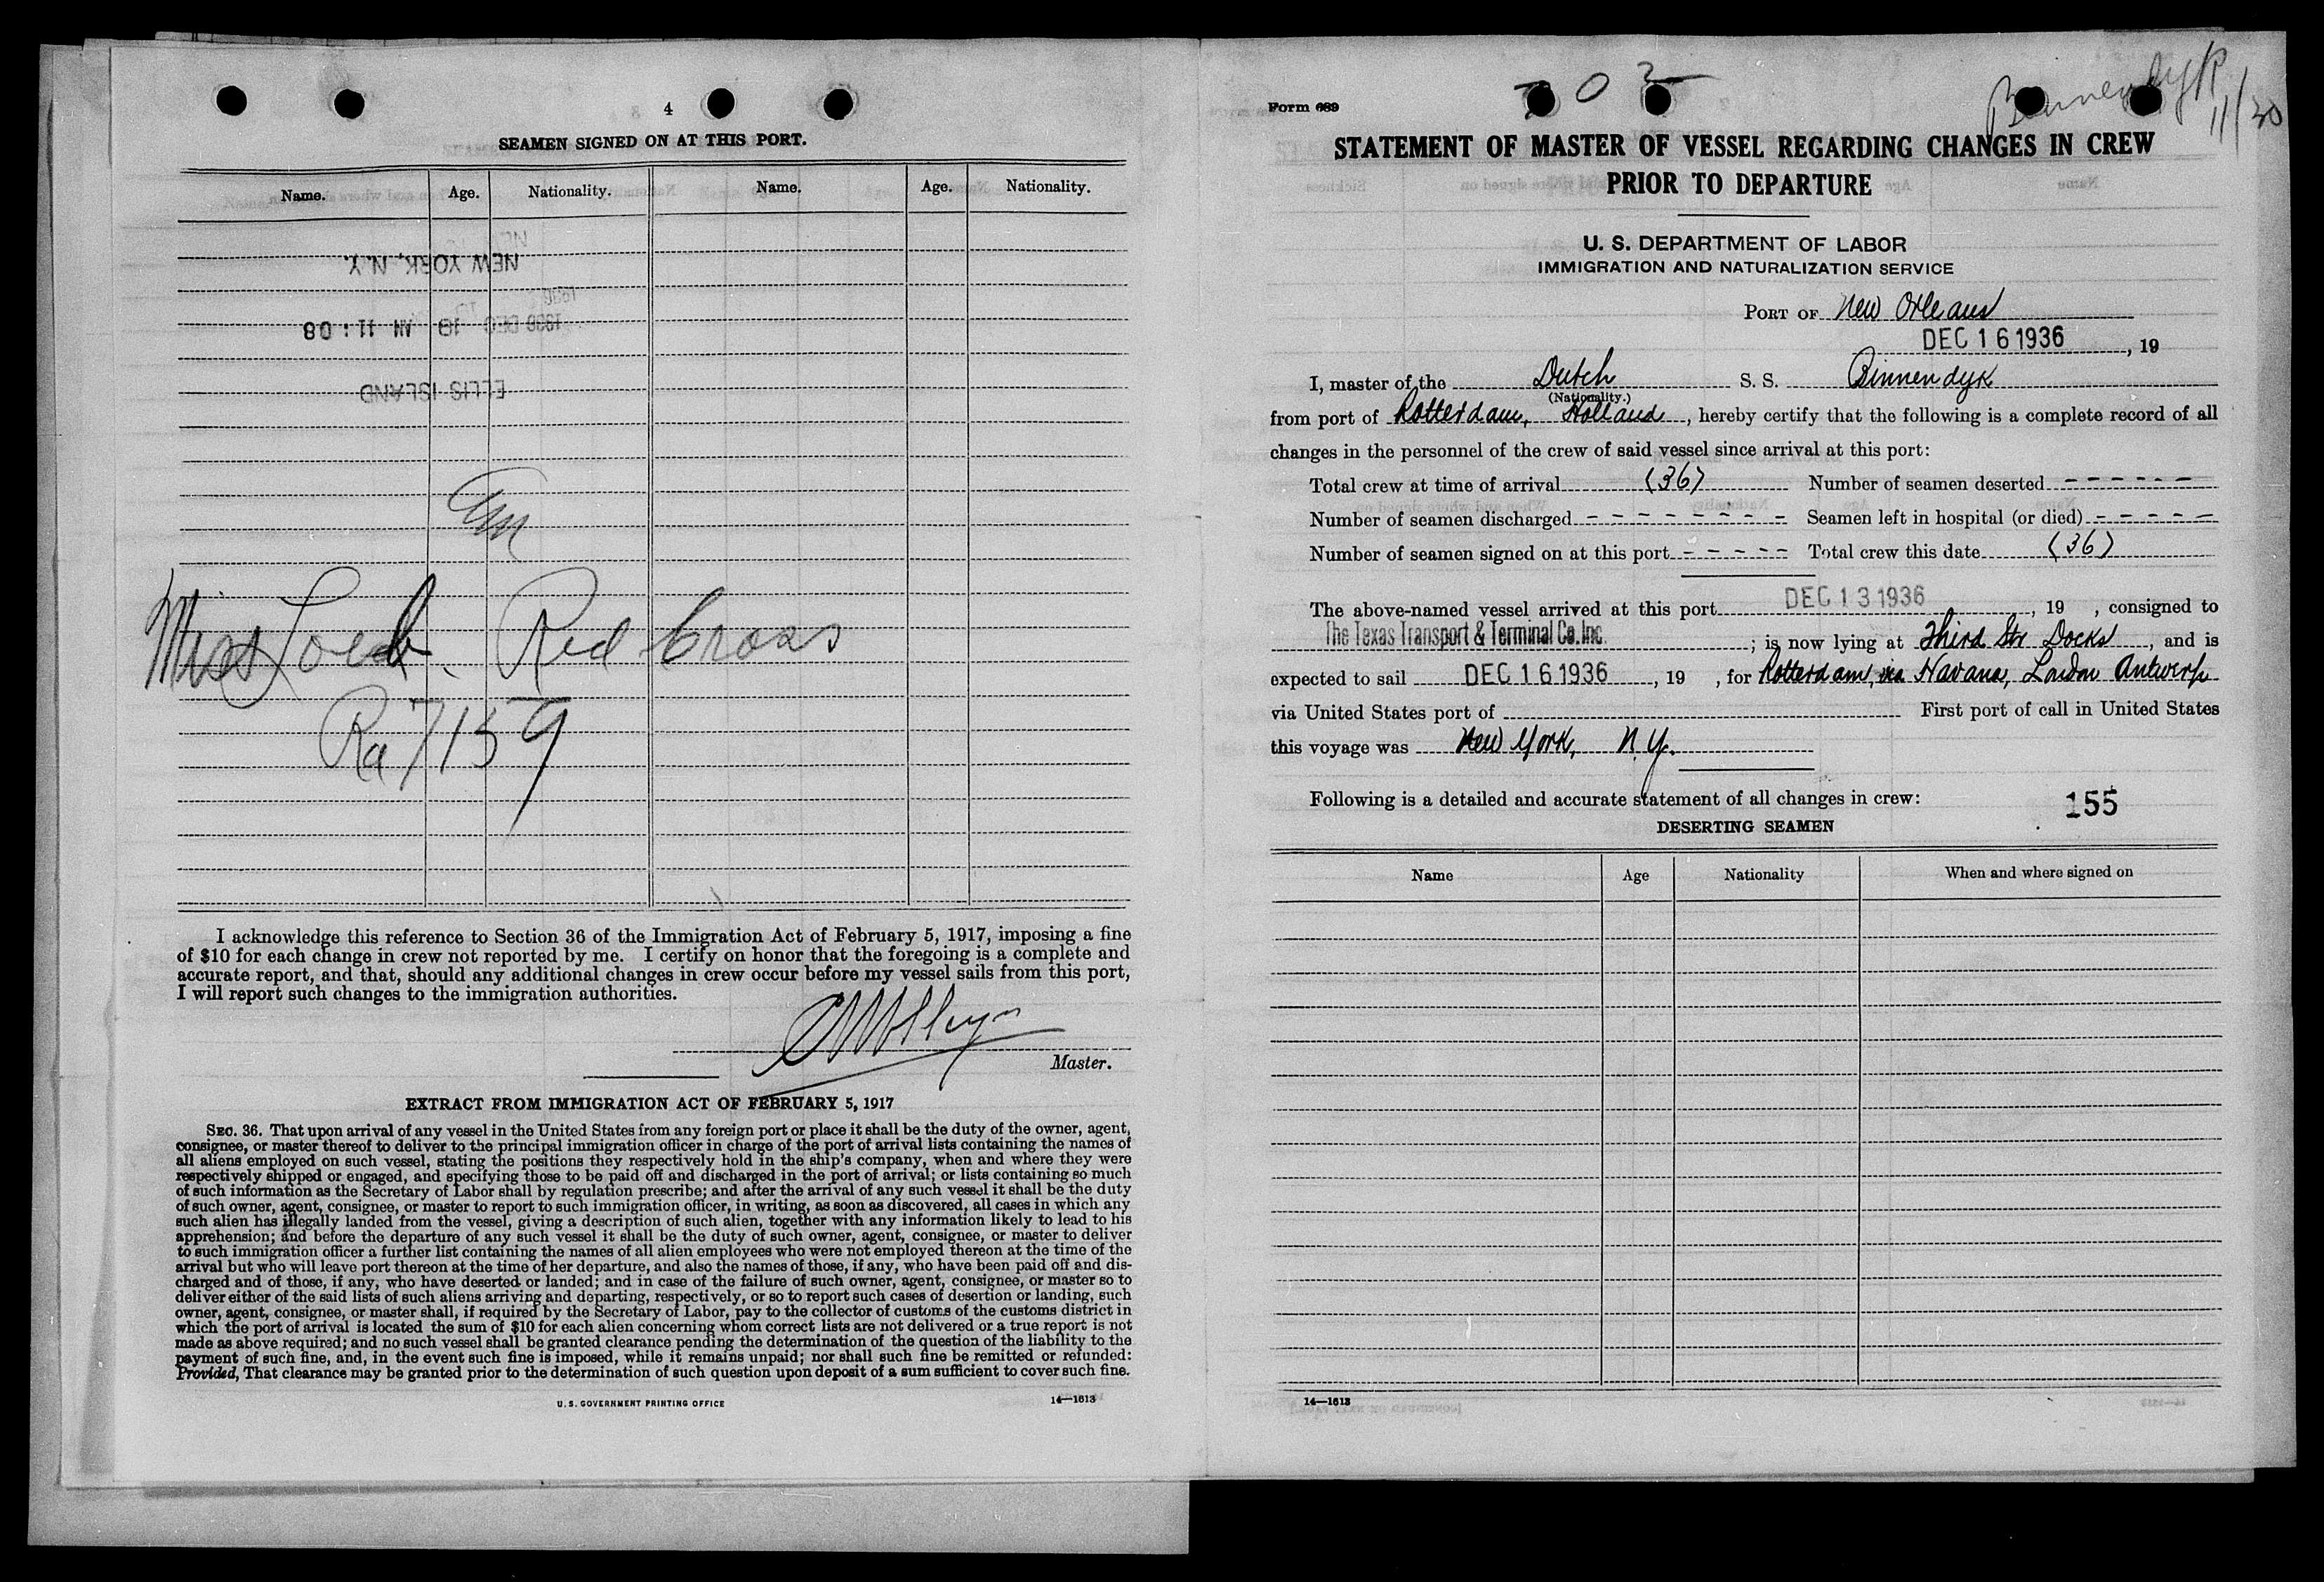 4
SEAMEN SIGNED ON AT THIS PORT.
Name. Age. Nationality. Name. Age. Nationality.
NEW YORK, N.Y.
1936 DEC 19 AM 11:08
ELLIS ISLAND
Miss Loeb. Red Cross
Ra 7159
I acknowledge this reference to Section 36 of the Immigration Act of February 5, 1917, imposing a fine
of $10 for each change in crew not reported by me. I certify on honor that the foregoing is a complete and
accurate report, and that, should any additional changes in crew occur before my vessel sails from this port,
I will report such changes to the immigration authorities.
Master.
EXTRACT FROM IMMIGRATION ACT OF FEBRUARY 5, 1917
SEC. 36. That upon arrival of any vessel in the United States from any foreign port or place it shall be the duty of the owner, agent,
consignee, or master thereof to deliver to the principal immigration officer in charge of the port of arrival lists containing the names of
all aliens employed on such vessel, stating the positions they respectively hold in the ship's company, when and where they were
respectively shipped or engaged, and specifying those to be paid off and discharged in the port of arrival; or lists containing so much
of such information as the Secretary of Labor shall by regulation prescribe; and after the arrival of any such vessel it shall be the duty
of such owner, agent, consignee, or master to report to such immigration officer, in writing, as soon as discovered, all cases in which any
such alien has illegally landed from the vessel, giving a description of such alien, together with any information likely to lead to his
apprehension; and before the departure of any such vessel it shall be the duty of such owner, agent, consignee, or master to deliver
to such immigration officer a further list containing the names of all alien employees who were not employed thereon at the time of the
arrival but who will leave port thereon at the time of her departure, and also the names of those, if any, who have been paid off and dis-
charged and of those, if any, who have deserted or landed; and in case of the failure of such owner, agent, consignee, or master so to
deliver either of the said lists of such aliens arriving and departing, respectively, or so to report such cases of desertion or landing, such
owner, agent, consignee, or master shall, if required by the Secretary of Labor, pay to the collector of customs of the customs district in
which the port of arrival is located the sum of $10 for each alien concerning whom correct lists are not delivered or a true report is not
made as above required; and no such vessel shall be granted clearance pending the determination of the question of the liability to the
payment of such fine, and, in the event such fine is imposed, while it remains unpaid; nor shall such fine be remitted or refunded:
Provided, That clearance may be granted prior to the determination of such question upon deposit of a sum sufficient to cover such fine.
U. S. GOVERNMENT PRINTING OFFICE 14—1613
Binnendyk
11/30
Form 689
STATEMENT OF MASTER OF VESSEL REGARDING CHANGES IN CREW
PRIOR TO DEPARTURE
U. S. DEPARTMENT OF LABOR
IMMIGRATION AND NATURALIZATION SERVICE
PORT OF New Orleans
DEC 16 1936, 19
I, master of the Dutch S. S. Binnendyk
(Nationality.)
from port of Rotterdam, Holland, hereby certify that the following is a complete record of all
changes in the personnel of the crew of said vessel since arrival at this port:
Total crew at time of arrival (36) Number of seamen deserted - - - - - -
Number of seamen discharged - - - - - - - - Seamen left in hospital (or died) - - - - -
Number of seamen signed on at this port - - - - - Total crew this date (36)
The above-named vessel arrived at this port DEC 13 1936, 19 , consigned to
The Texas Transport & Terminal Co. Inc. ; is now lying at Third Str Docks, and is
expected to sail DEC 16 1936, 19 , for Rotterdam, via Havana, London Antwerp
via United States port of First port of call in United States
this voyage was New York, N.Y.
Following is a detailed and accurate statement of all changes in crew:
155
DESERTING SEAMEN
Name Age Nationality When and where signed on
14—1613